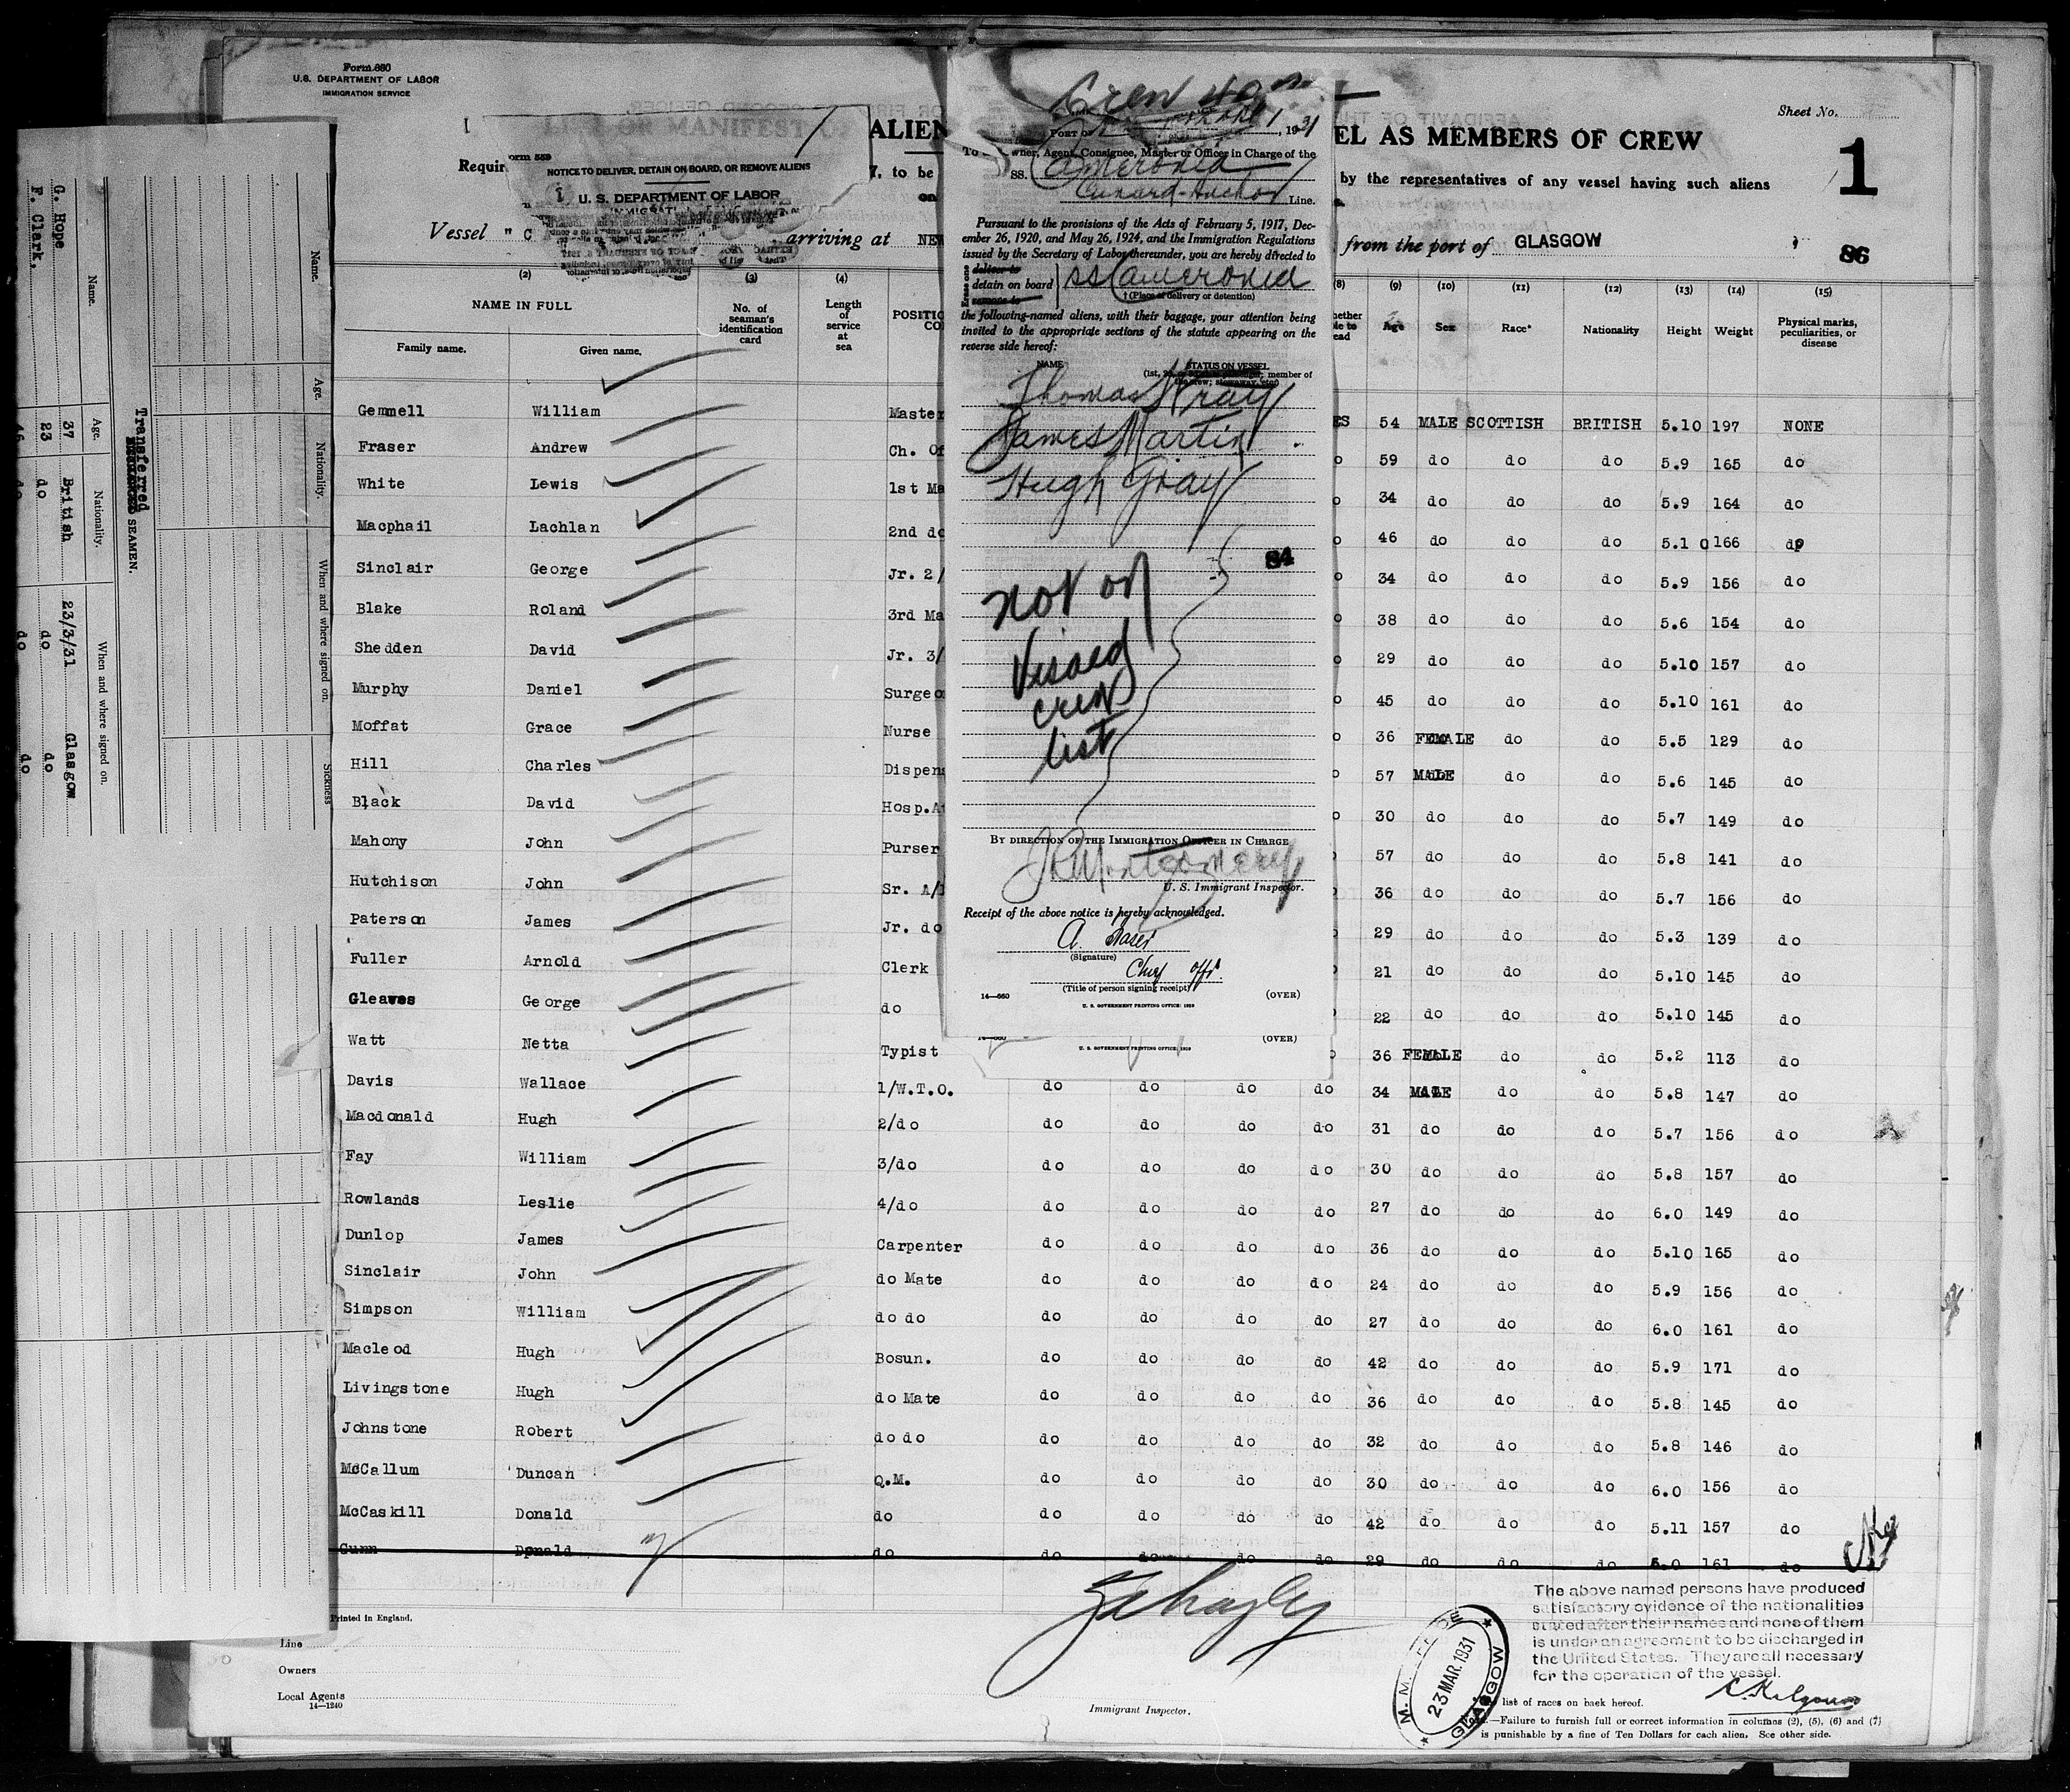 Form 680
U.S. DEPARTMENT OF LABOR
IMMIGRATION SERVICE
ALIEN
EL AS MEMBERS OF CREW
Sheet No.
1
86
Requir
7, to be
on
by the representatives of any vessel having such aliens
Vessel " C
arriving at NEW
from the port of GLASGOW
Form 559
NOTICE TO DELIVER, DETAIN ON BOARD, OR REMOVE ALIENS
U. S. DEPARTMENT OF LABOR
Crew
PORT OF
, 1931
To
wner, Agent, Consignee, Master or Officer in Charge of the
SS. Cameronia
Cunard-Anchor Line.
Pursuant to the provisions of the Acts of February 5, 1917, Dec-
ember 26, 1920, and May 26, 1924, and the Immigration Regulations
issued by the Secretary of Labor thereunder, you are hereby directed to
Erase one
deliver to
detain on board
remove to
SS Cameronia
†(Place of delivery or detention)
the following-named aliens, with their baggage, your attention being
invited to the appropriate sections of the statute appearing on the
reverse side hereof:
NAME STATUS ON VESSEL
Thomas Wray
James Martin
Hugh Gray
84
not on
Visaed
crew
list
BY DIRECTION OF THE IMMIGRATION OFFICER IN CHARGE
J R Montgomery
U. S. Immigrant Inspector.
Receipt of the above notice is hereby acknowledged.
A. Fraser
(Signature)
Chief Offr.
(Title of person signing receipt)
14—660 (OVER)
U. S. GOVERNMENT PRINTING OFFICE: 1929
(OVER)
U. S. GOVERNMENT PRINTING OFFICE: 1929
(2) (3) (4) (8) (9) (10) (11) (12) (13) (14) (15)
NAME IN FULL
Family name. Given name.
No. of seaman's identification card
Length of service at sea
Age Sex Race* Nationality Height Weight Physical marks, peculiarities, or disease
Gemmell William Master ES 54 MALE SCOTTISH BRITISH 5.10 197 NONE
Fraser Andrew Ch. Of 59 do do do 5.9 165 do
White Lewis 1st Ma 34 do do do 5.9 164 do
Macphail Lachlan 2nd do 46 do do do 5.10 166 do
Sinclair George Jr. 2/ 34 do do do 5.9 156 do
Blake Roland 3rd Ma 38 do do do 5.6 154 do
Shedden David Jr. 3/ 29 do do do 5.10 157 do
Murphy Daniel Surgeo 45 do do do 5.10 161 do
Moffat Grace Nurse 36 FEMALE do do 5.5 129 do
Hill Charles Dispen 57 MALE do do 5.6 145 do
Black David Hosp.A 30 do do do 5.7 149 do
Mahony John Purser 57 do do do 5.8 141 do
Hutchison John Sr. A/ 36 do do do 5.7 156 do
Paterson James Jr. do 29 do do do 5.3 139 do
Fuller Arnold Clerk 21 do do do 5.10 145 do
Gleaves George do 22 do do do 5.10 145 do
Watt Netta Typist 36 FEMALE do do 5.2 113 do
Davis Wallace 1/W.T.O. do do do do 34 MALE do do 5.8 147 do
Macdonald Hugh 2/do do do do do 31 do do do 5.7 156 do
Fay William 3/do do do do do 30 do do do 5.8 157 do
Rowlands Leslie 4/do do do do do 27 do do do 6.0 149 do
Dunlop James Carpenter do do do do 36 do do do 5.10 165 do
Sinclair John do Mate do do do do 24 do do do 5.9 156 do
Simpson William do do do do do do 27 do do do 6.0 161 do
Macleod Hugh Bosun. do do do do 42 do do do 5.9 171 do
Livingstone Hugh do Mate do do do do 36 do do do 5.8 145 do
Johnstone Robert do do do do do do 32 do do do 5.8 146 do
McCallum Duncan Q.M. do do do do 30 do do do 6.0 156 do
McCaskill Donald do do do do do 42 do do do 5.11 157 do
Gunn Donald do do do do do 29 do do do 6.0 161 do
Printed in England.
Line
Owners
Local Agents
14—1240
Immigrant Inspector.
GLASGOW
23 MAR. 1931
The above named persons have produced
satisfactory evidence of the nationalities
stated after their names and none of them
is under an agreement to be discharged in
the United States. They are all necessary
for the operation of the vessel.
list of races on back hereof.
—Failure to furnish full or correct information in columns (2), (5), (6) and (7)
is punishable by a fine of Ten Dollars for each alien. See other side.
Transferred SEAMEN.
Name. Age. Nationality. When and where signed on. Sickness
Name. Age. Nationality. When and where signed on.
G. Hope 37 British 23/3/31 Glasgow
F. Clark, 23 do do do
46 do do do